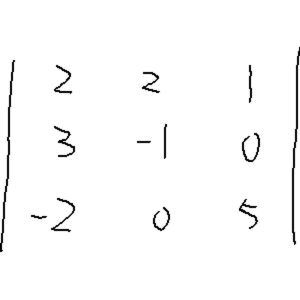 | 2 2 1 |
| 3 -1 0 |
| -2 0 5 |